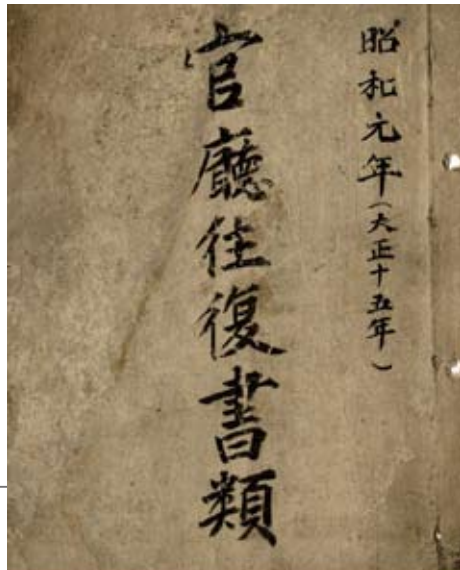 昭和元年(大正十五年)
官廳往復書類